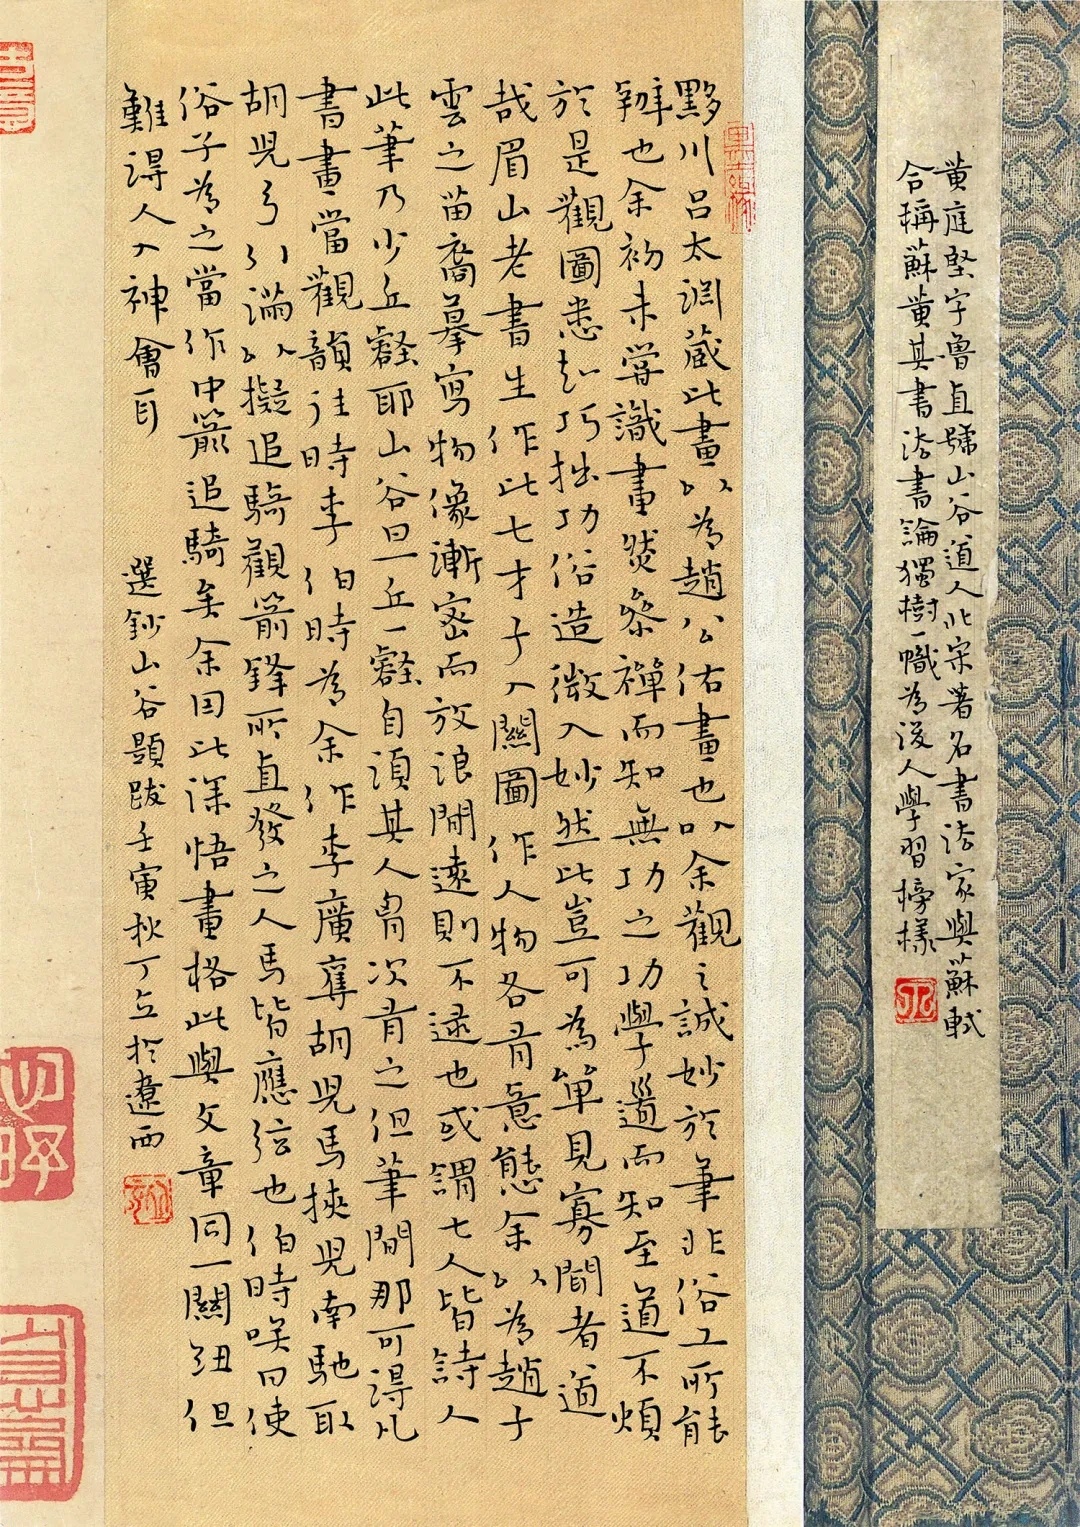 黄庭堅字魯直號山谷道人北宋著名書法家與蘇軾
合稱蘇黄其書法書論獨樹一幟為後人學習榜樣
黟川呂太淵藏此畫以為趙公佑畫也以余觀之誠妙於筆非俗工所能
辦也余初未嘗識畫然參禪而知無功之功學道而知至道不煩
於是觀圖悉知巧拙功俗造微入妙然此豈可為單見寡聞者道
哉眉山老書生作此七才子入關圖作人物各有意態余以為趙子
雲之苗裔摹寫物像漸密而放浪閒遠則不逮也或謂七人皆詩人
此筆乃少丘壑耶山谷曰一丘一壑自須其人胷次有之但筆間那可得凡
書畫當觀韻往時李伯時為余作李廣奪胡兒馬挾兒南馳取
胡兒弓引滿以擬追騎觀箭鋒所直發之人馬皆應弦也伯時咲曰使
俗子為之當作中箭追騎矣余因此深悟畫格此與文章同一關紐但
難得人入神會耳 選鈔山谷題跋壬寅秋丁立於遼西